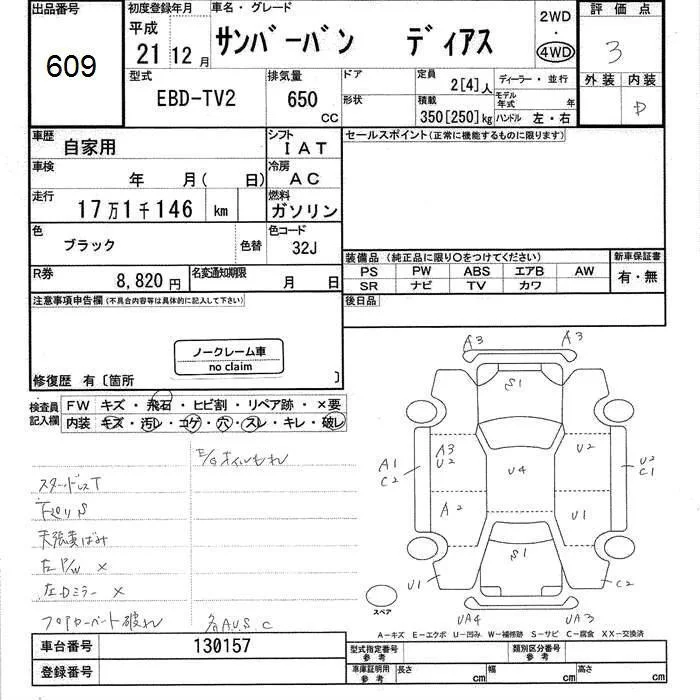 出品番号
609
初度登録年月
平成
21 12月
車名・グレード
サンバーバン ディアス
2WD
・
4WD
評価点
3
外装 内装
D
型式
EBD-TV2
排気量
650
CC
ドア
形状
定員
2[4]人
積載
350[250]kg
ディーラー・並行
モデル年式 年
ハンドル 左・右
車歴
自家用
シフト
IAT
車検
年 月( 日)
冷房
AC
走行
17万1千146 km
燃料
ガソリン
色
ブラック
色替
色コード
32J
R券
8,820円
名変通知期限
月 日
セールスポイント(正常に機能するものに限ります)
装備品(純正品に限り○をつけてください)
PS PW ABS エアB AW
SR ナビ TV カワ
新車保証書
有・無
後日品
注意事項申告欄(不具合内容等は具体的に記入して下さい)
ノークレーム車
no claim
修復歴 有〔箇所 〕
検査員記入欄
FW キズ・飛石・ヒビ割・リペア跡・×要
内装 キズ・汚レ・コゲ・穴・スレ・キレ・破レ
E/Gオイルもれ
スタッドレスT
下廻りS
左P/W ×
左Dミラー ×
フロアカーペット破れ
各AUSC
A3 A3
S1
A1
C2
A3
U2
U2
U2
C1
U4
A2
U1
S1
U1
C2
スペア
UA4
UA3
A-キズ E-エクボ U-凹み W-補修跡 S-サビ C-腐食 XX-交換済
車台番号
130157
登録番号
型式指定番号
参考
類別区分番号
参考
車庫証明用
参考
長さ cm 幅 cm 高さ cm